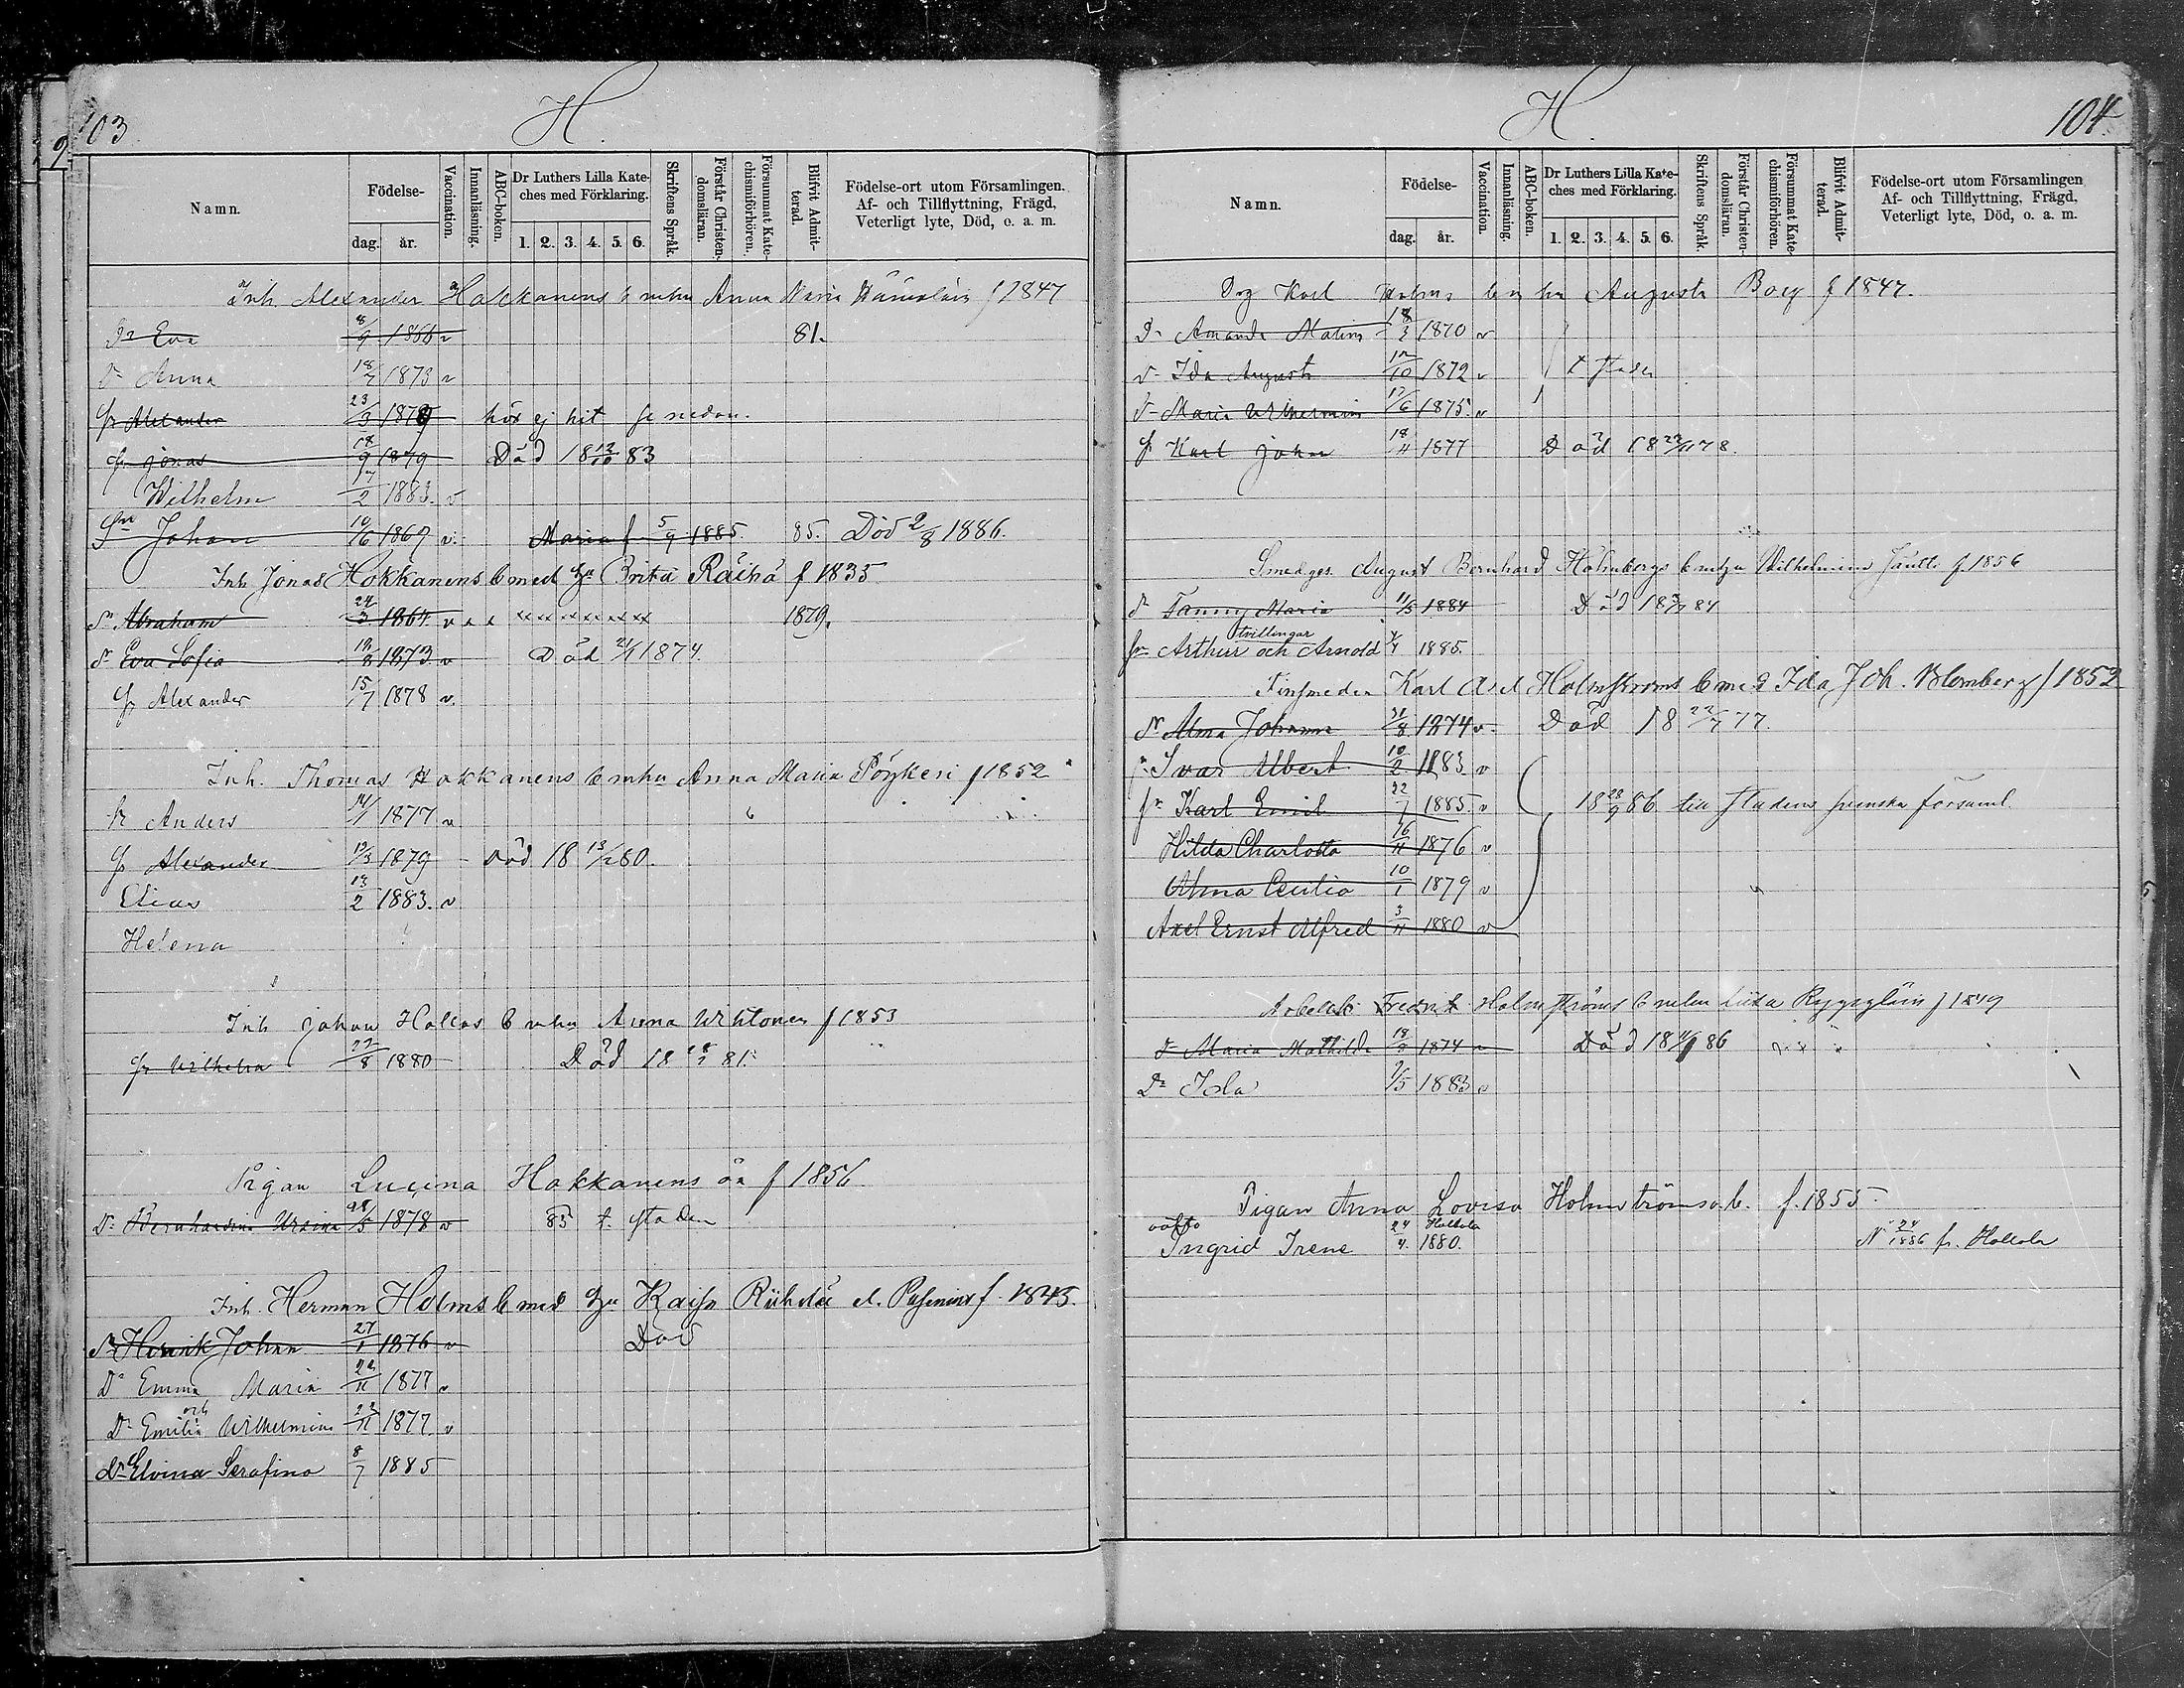 103
H.
Namn.
Födelse-
dag.
år.
Vaccination.
Innanläsning.
ABC-boken.
Dr Luthers Lilla Kate-
ches med Förklaring.
1. 2. 3. 4. 5. 6.
Skriftens Språk.
Förstår Christen-
domsläran.
Försummat Kate-
chismiförhören.
Blifvit Admit-
terad.
Födelse-ort utom Församlingen.
Af- och Tillflyttning, Frägd,
Veterligt lyte, Död, o. a. m.
Inh. Alexander Hokkanens b m hu Anna Maria f 1847
Dr Eva 8/9 1866 v 81.
Dr Anna 18/7 1873 v
Sn Alexander 23/3 1878 hör ej hit se nedan.
Sn Jonas 18/9 1879 Död 18 12/10 83
Wilhelm 17/2 1883. v
Sn Johan 10/6 1867 v. Maria f 5/9 1885. 85. Död 2/8 1886.
Inh Jonas Hokkanens b med hu Brita Räihä f 1835
Sn Abraham 24/3 1864 v x x xxxxxxxx 1879.
Dr Eva Sofia 1873 v Död 1874.
Sn Alexander 15/7 1878 v.
Inh. Thomas Hakkanens b m hu Anna Maria Pöykeri f 1852
Sn Anders 14/1 1877 v
Sn Alexander 19/3 1879 Död 18 13/2 80.
Elias 13/2 1883. v
Helena
Inh Johan Hallas b m hu Anna Wihtonen f 1853
Sn Wilhelm 22/8 1880 Död 18 81.
Pigan Lucina Hakkanens öä f 1856
Dr Bernhardina Ursina 28/5 1878 v 83 t. staden
Inh. Herman Holms b med hu Kajsa f. 1843.
Sn Henrik Johan 27/1 1876 v Död
Dr Emma Maria 22/11 1877 v
och
Dr Emilia Wilhelmina 22/11 1877. v
Dr Elvina Serafina 8/7 1885
104.
H.
Namn.
Födelse-
dag.
år.
Vaccination.
Innanläsning.
ABC-boken.
Dr Luthers Lilla Kate-
ches med Förklaring.
1. 2. 3. 4. 5. 6.
Skriftens Språk.
Förstår Christen-
domsläran.
Försummat Kate-
chismiförhören.
Blifvit Admit-
terad.
Födelse-ort utom Församlingen
Af- och Tillflyttning, Frägd,
Veterligt lyte, Död, o. a. m.
Drg Karl Holms b m hu Augusta Borg f 1847.
Dr Amanda Matina 18/3 1870 v
Dr Ida Augusta 12/10 1872 v t staden
Dr Maria Wilhelmina 17/6 1875. v
Sn Karl Johan 18/11 1877 Död 18 22/11 78.
Smedges. August Bernhard Holmbergs b m hu Wilhelmina f. 1856
Dr Fanny Maria 11/5 1884 Död 18 84
tvillingar
Sn Arthur och Arnold 1885.
Finsmeden Karl Axel Holmströms b med Ida Joh. Blomberg f 1852
Dr Alma Johanna 31/8 1874 v Död 18 22/7 77.
Sn Ivar Albert 10/2 1883 v
Sn Karl Emil 22/7 1885. v 18 28/9 86 till stadens svenska församl.
Hilda Charlotta 16/11 1876 v
Alma Cecilia 10/1 1879 v
Axel Ernst Alfred 3/11 1880 v
Arbetsk. Fredrik Holmströms f 1849
Dr Maria Mathilda 1874 v Död 18 86
Dr Isla 1883 v
Pigan Anna Lovisa Holmströms o.b. f. 1855
oäkta
Ingrid Irene 24/4. 1880. Hollola
24/1886 fr. Hollola